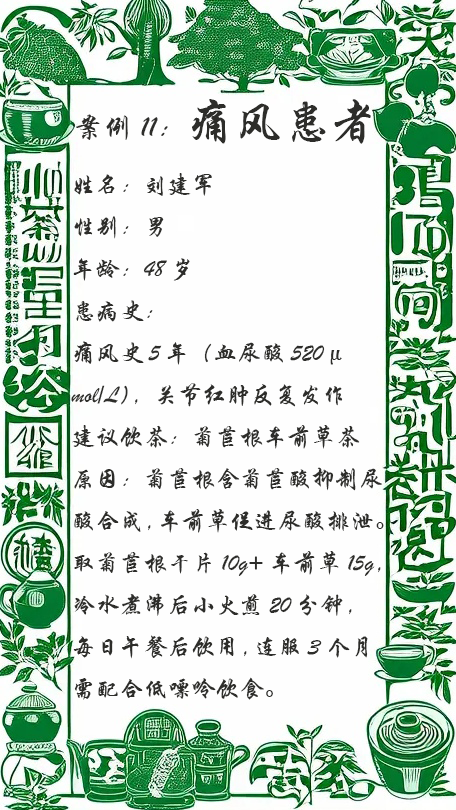 案例 11：痛风患者
姓名：刘建军
性别：男
年龄：48 岁
患病史：
痛风史5 年（血尿酸 520 μ
mol/L），关节红肿反复发作
建议饮茶：菊苣根车前草茶
原因：菊苣根含菊苣酸抑制尿
酸合成，车前草促进尿酸排泄。
取菊苣根干片 10g+ 车前草 15g，
冷水煮沸后小火煎 20 分钟，
每日午餐后饮用，连服 3 个月
需配合低嘌呤饮食。